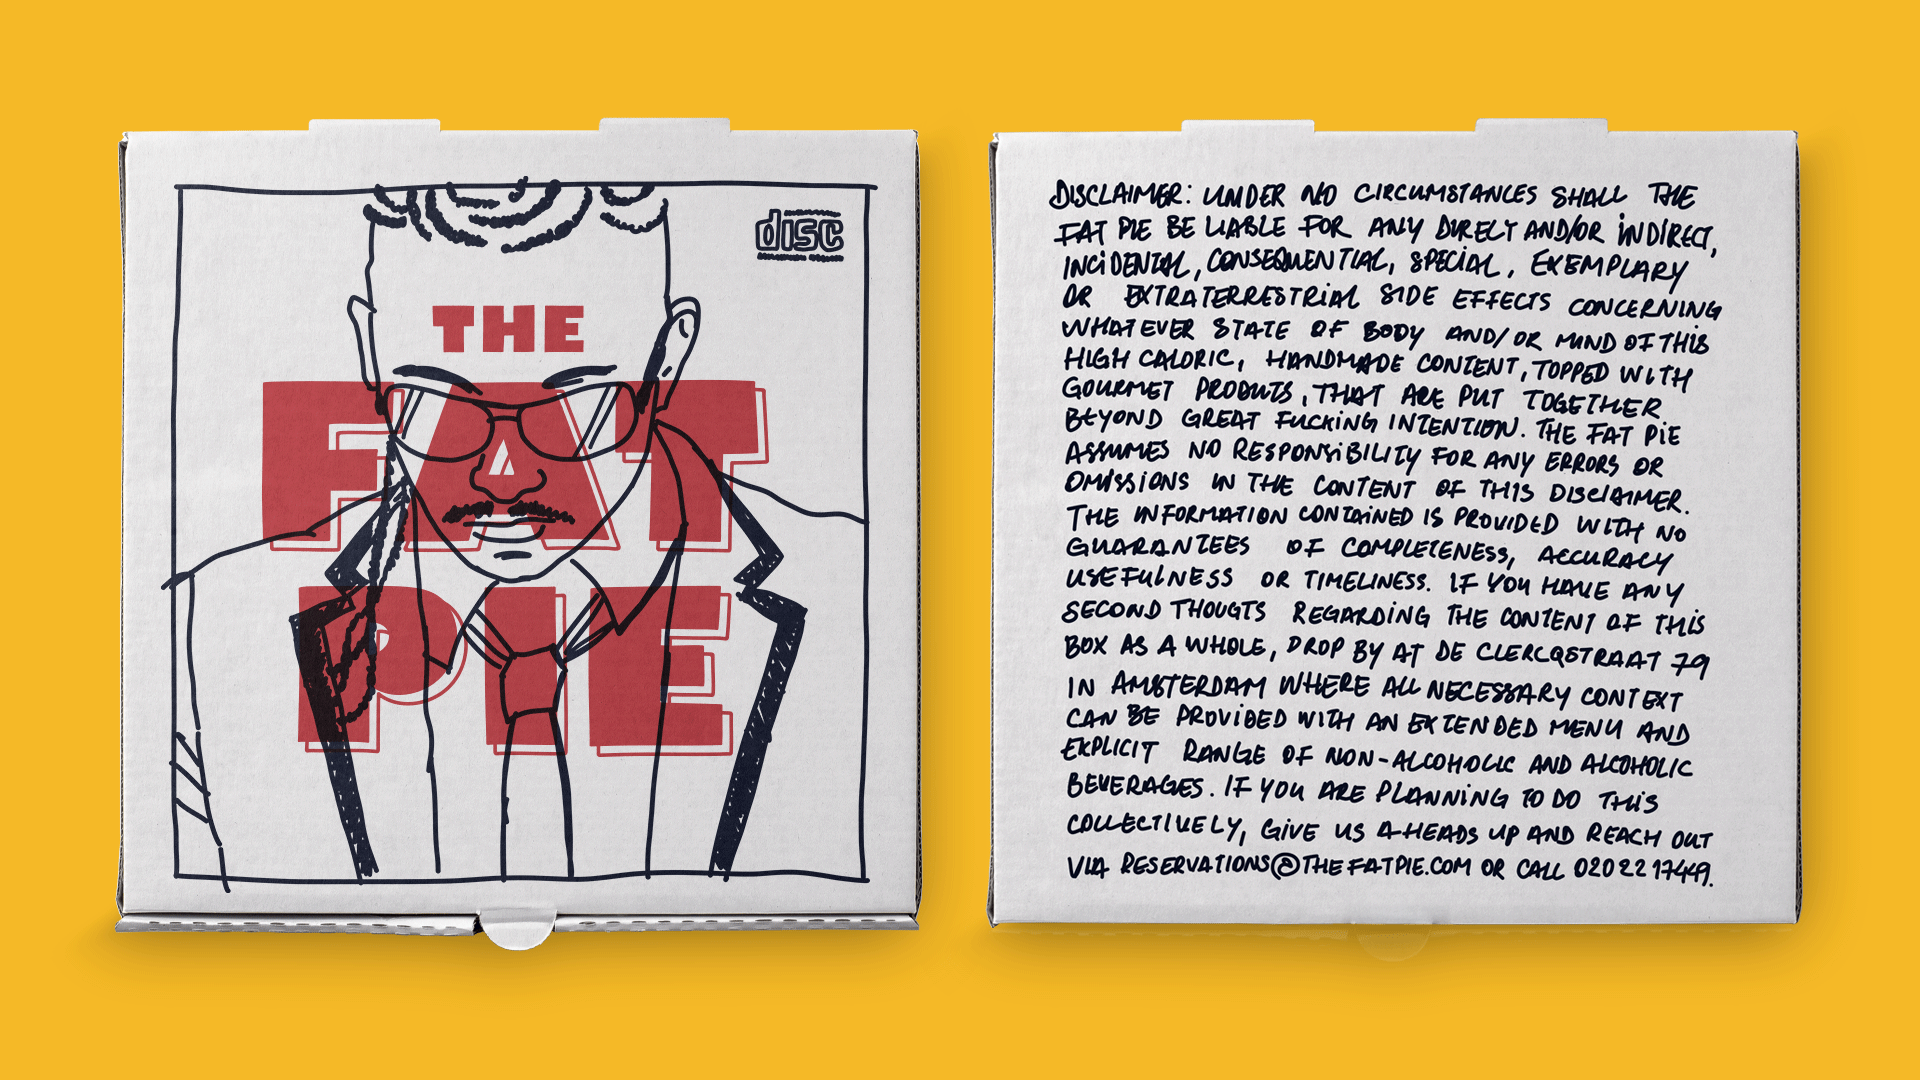 THE
FAT
PIE
disc
DISCLAIMER: UNDER NO CIRCUMSTANCES SHALL THE
FAT PIE BE LIABLE FOR ANY DIRECT AND/OR INDIRECT,
INCIDENTAL, CONSEQUENTIAL, SPECIAL, EXEMPLARY
OR EXTRATERRESTRIAL SIDE EFFECTS CONCERNING
WHATEVER STATE OF BODY AND/OR MIND OF THIS
HIGH CALORIC, HANDMADE CONTENT, TOPPED WITH
GOURMET PRODUTS, THAT ARE PUT TOGETHER
BEYOND GREAT FUCKING INTENTION. THE FAT PIE
ASSUMES NO RESPONSIBILITY FOR ANY ERRORS OR
OMISSIONS IN THE CONTENT OF THIS DISCLAIMER.
THE INFORMATION CONTAINED IS PROVIDED WITH NO
GUARANTEES OF COMPLETENESS, ACCURACY
USEFULNESS OR TIMELINESS. IF YOU HAVE ANY
SECOND THOUGTS REGARDING THE CONTENT OF THIS
BOX AS A WHOLE, DROP BY AT DE CLERCQSTRAAT 79
IN AMSTERDAM WHERE ALL NECESSARY CONTEXT
CAN BE PROVIDED WITH AN EXTENDED MENU AND
EXPLICIT RANGE OF NON-ALCOHOLIC AND ALCOHOLIC
BEVERAGES. IF YOU ARE PLANNING TO DO THIS
COLLECTIVELY, GIVE US A HEADS UP AND REACH OUT
VIA RESERVATIONS@THEFATPIE.COM OR CALL 020 22 17449.